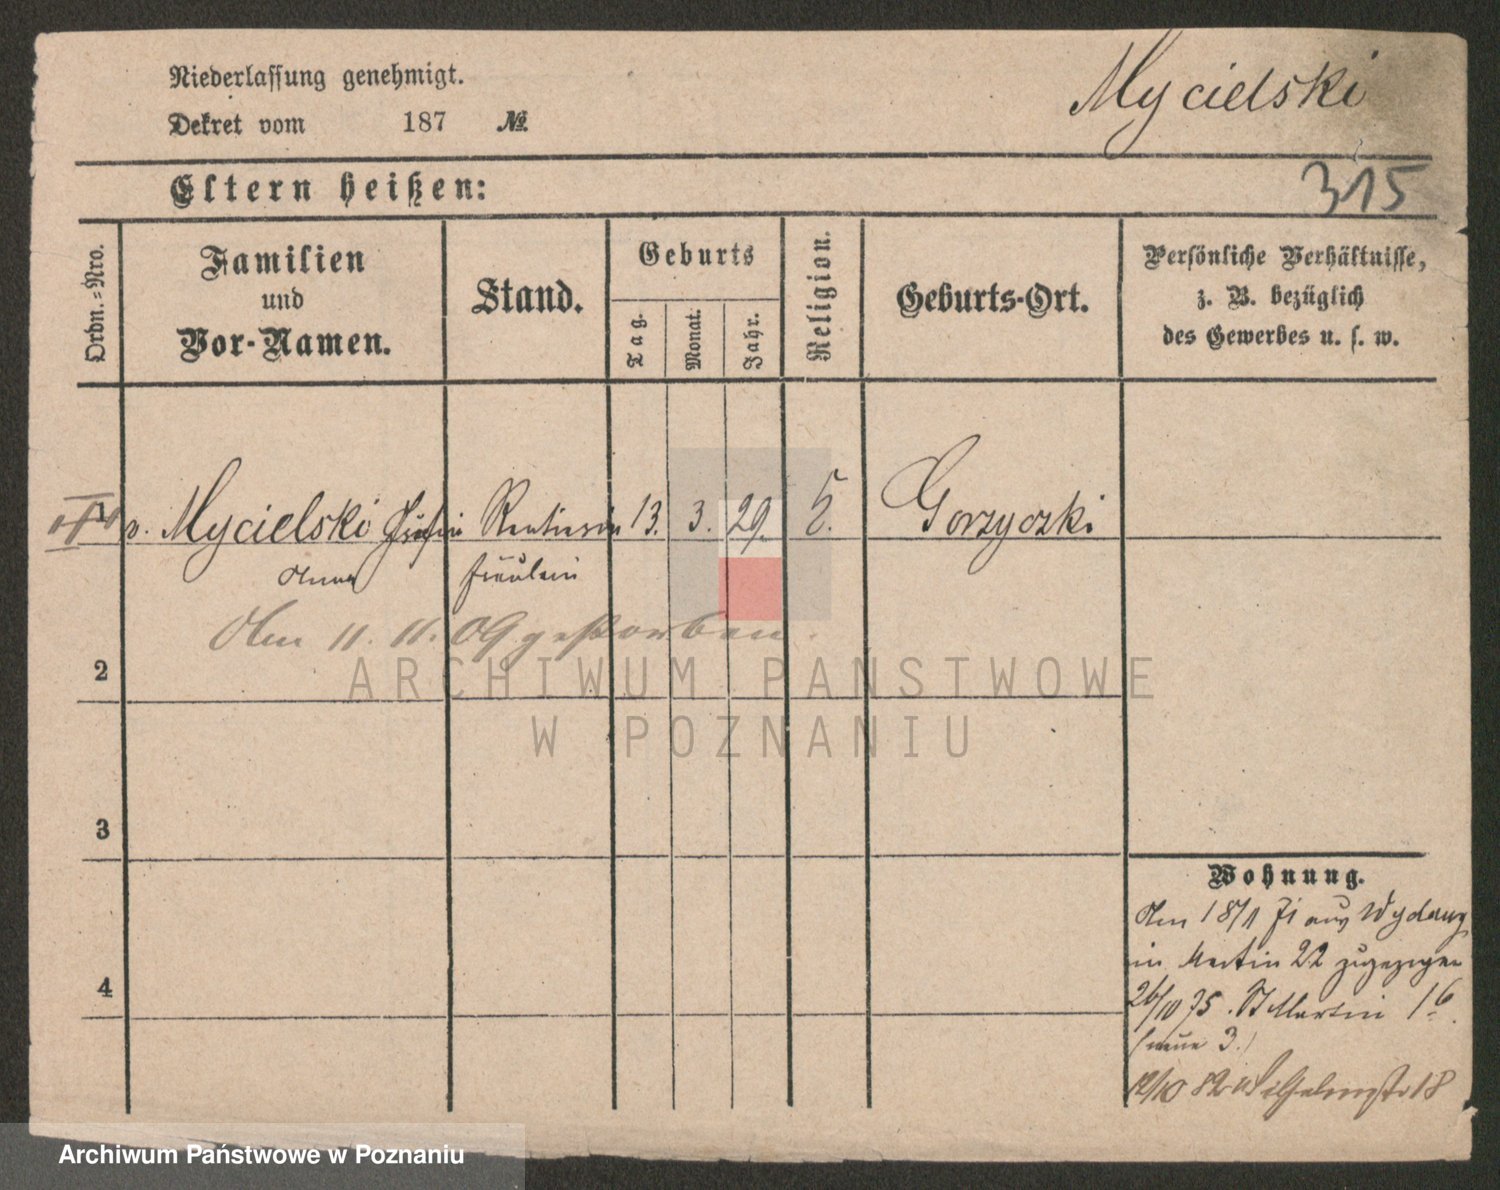 Niederlassung genehmigt.
Mycielski
Dekret vom 187 No.
315
Eltern heißen:
Ordn.=Nro.
Familien
und
Vor-Namen.
Stand.
Geburts
Tag.
Monat.
Jahr.
Religion.
Geburts-Ort.
Persönliche Verhältnisse,
z. B. bezüglich
des Gewerbes u. s. w.
1 v. Mycielski Rentierin 13. 3. 29. Gorzyczki
Anna Fräulein
Am 11. 11. 09 gestorben.
2
3
4
Wohnung.
Am 18/1 71 aus
in Martin 22 zugezogen
26/10 75. St Martin 16.
(neue 3.)
12/10 82 Wilhelmstr 18
ARCHIWUM PAŃSTWOWE
W POZNANIU
Archiwum Państwowe w Poznaniu